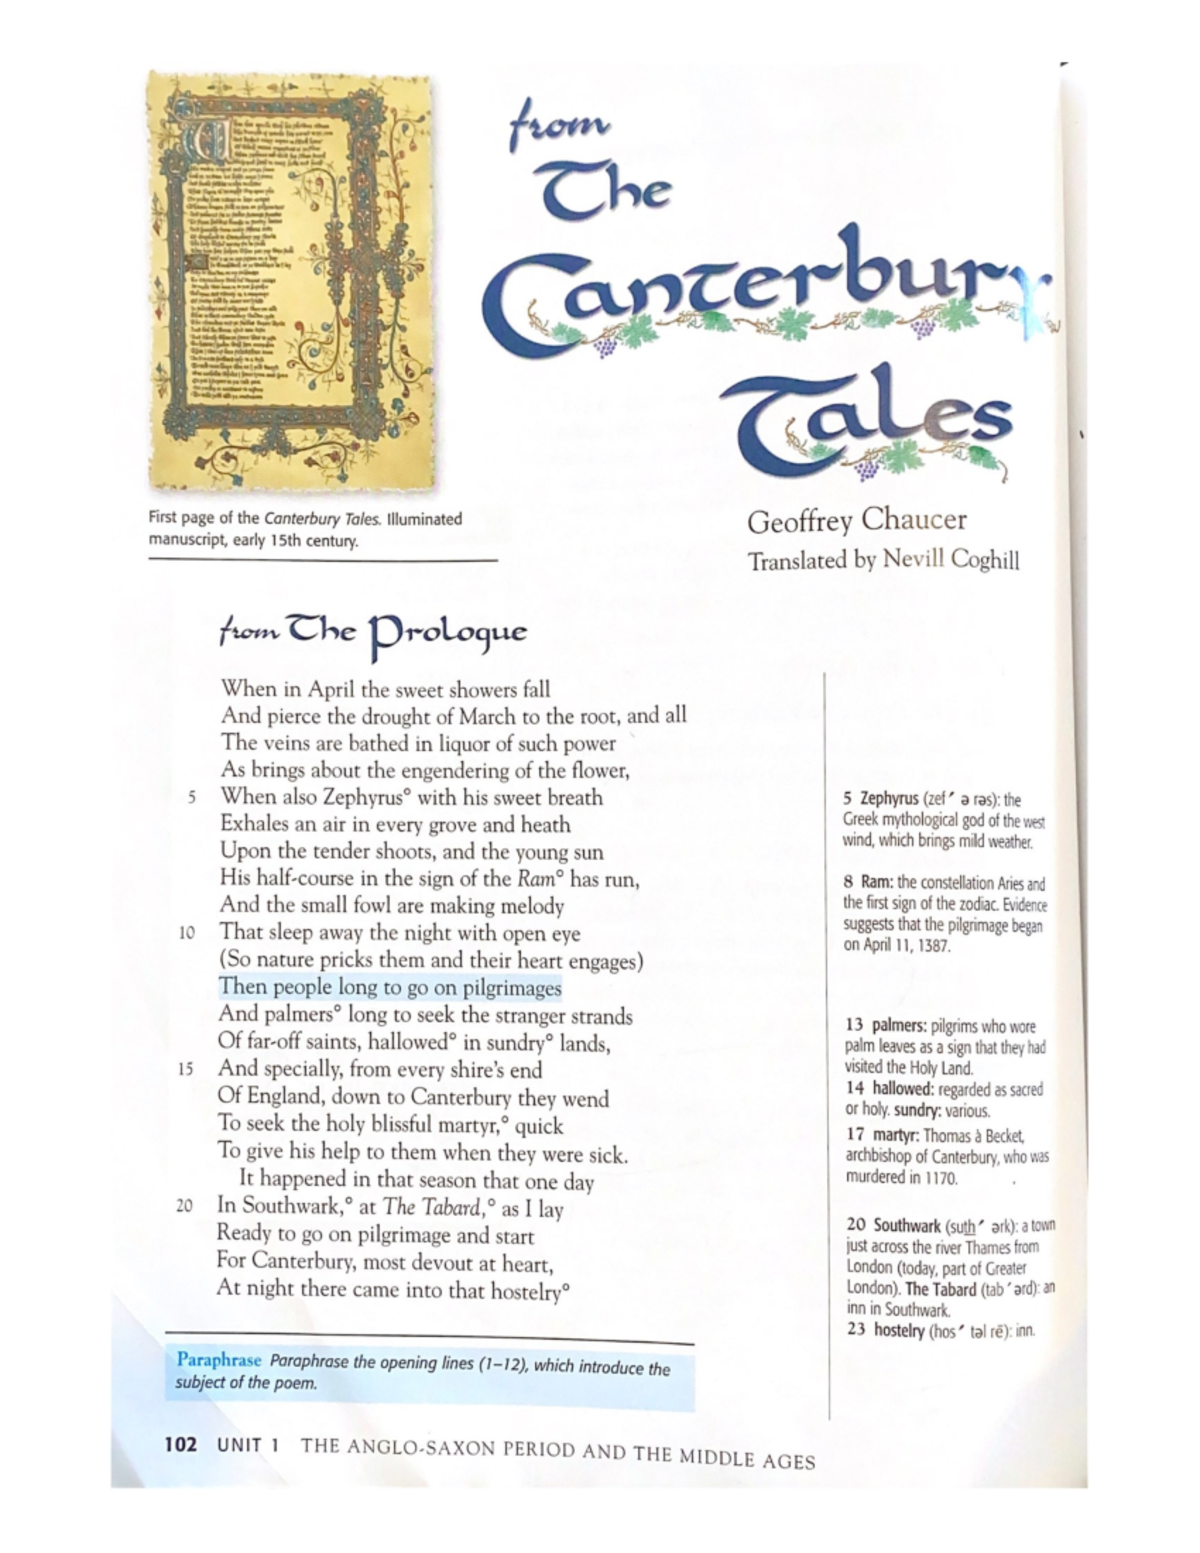 from
The
Canterbury
Tales
Geoffrey Chaucer
Translated by Nevill Coghill
First page of the Canterbury Tales. Illuminated
manuscript, early 15th century.
from The Prologue
When in April the sweet showers fall
And pierce the drought of March to the root, and all
The veins are bathed in liquor of such power
As brings about the engendering of the flower,
5 When also Zephyrus° with his sweet breath
Exhales an air in every grove and heath
Upon the tender shoots, and the young sun
His half-course in the sign of the Ram° has run,
And the small fowl are making melody
10 That sleep away the night with open eye
(So nature pricks them and their heart engages)
Then people long to go on pilgrimages
And palmers° long to seek the stranger strands
Of far-off saints, hallowed° in sundry° lands,
15 And specially, from every shire's end
Of England, down to Canterbury they wend
To seek the holy blissful martyr,° quick
To give his help to them when they were sick.
It happened in that season that one day
20 In Southwark,° at The Tabard,° as I lay
Ready to go on pilgrimage and start
For Canterbury, most devout at heart,
At night there came into that hostelry°
5 Zephyrus (zef′ ə rəs): the
Greek mythological god of the west
wind, which brings mild weather.
8 Ram: the constellation Aries and
the first sign of the zodiac. Evidence
suggests that the pilgrimage began
on April 11, 1387.
13 palmers: pilgrims who wore
palm leaves as a sign that they had
visited the Holy Land.
14 hallowed: regarded as sacred
or holy. sundry: various.
17 martyr: Thomas à Becket,
archbishop of Canterbury, who was
murdered in 1170.
20 Southwark (suth′ ərk): a town
just across the river Thames from
London (today, part of Greater
London). The Tabard (tab′ərd): an
inn in Southwark.
23 hostelry (hos′ təl rē): inn.
Paraphrase Paraphrase the opening lines (1–12), which introduce the
subject of the poem.
102 UNIT 1 THE ANGLO-SAXON PERIOD AND THE MIDDLE AGES